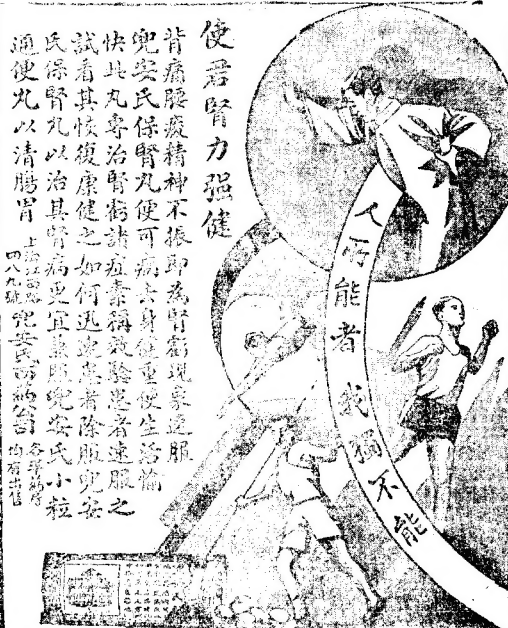 使君腎力强健
背痛腰痠精神不振即為腎虧現象速服
兜安氏保腎丸便可病去身健重使生活愉
快此丸專治腎虧諸症素稱效騐患者速服之
試看其恢復康健之如何迅速患者除服兜安
氏保腎丸以治其腎病更宜兼服兜安氏小粒
通便丸以清腸胃
上海江西路
四八九號
兜安氏西藥公司
各藥房
均有出售
人所能者我獨不能